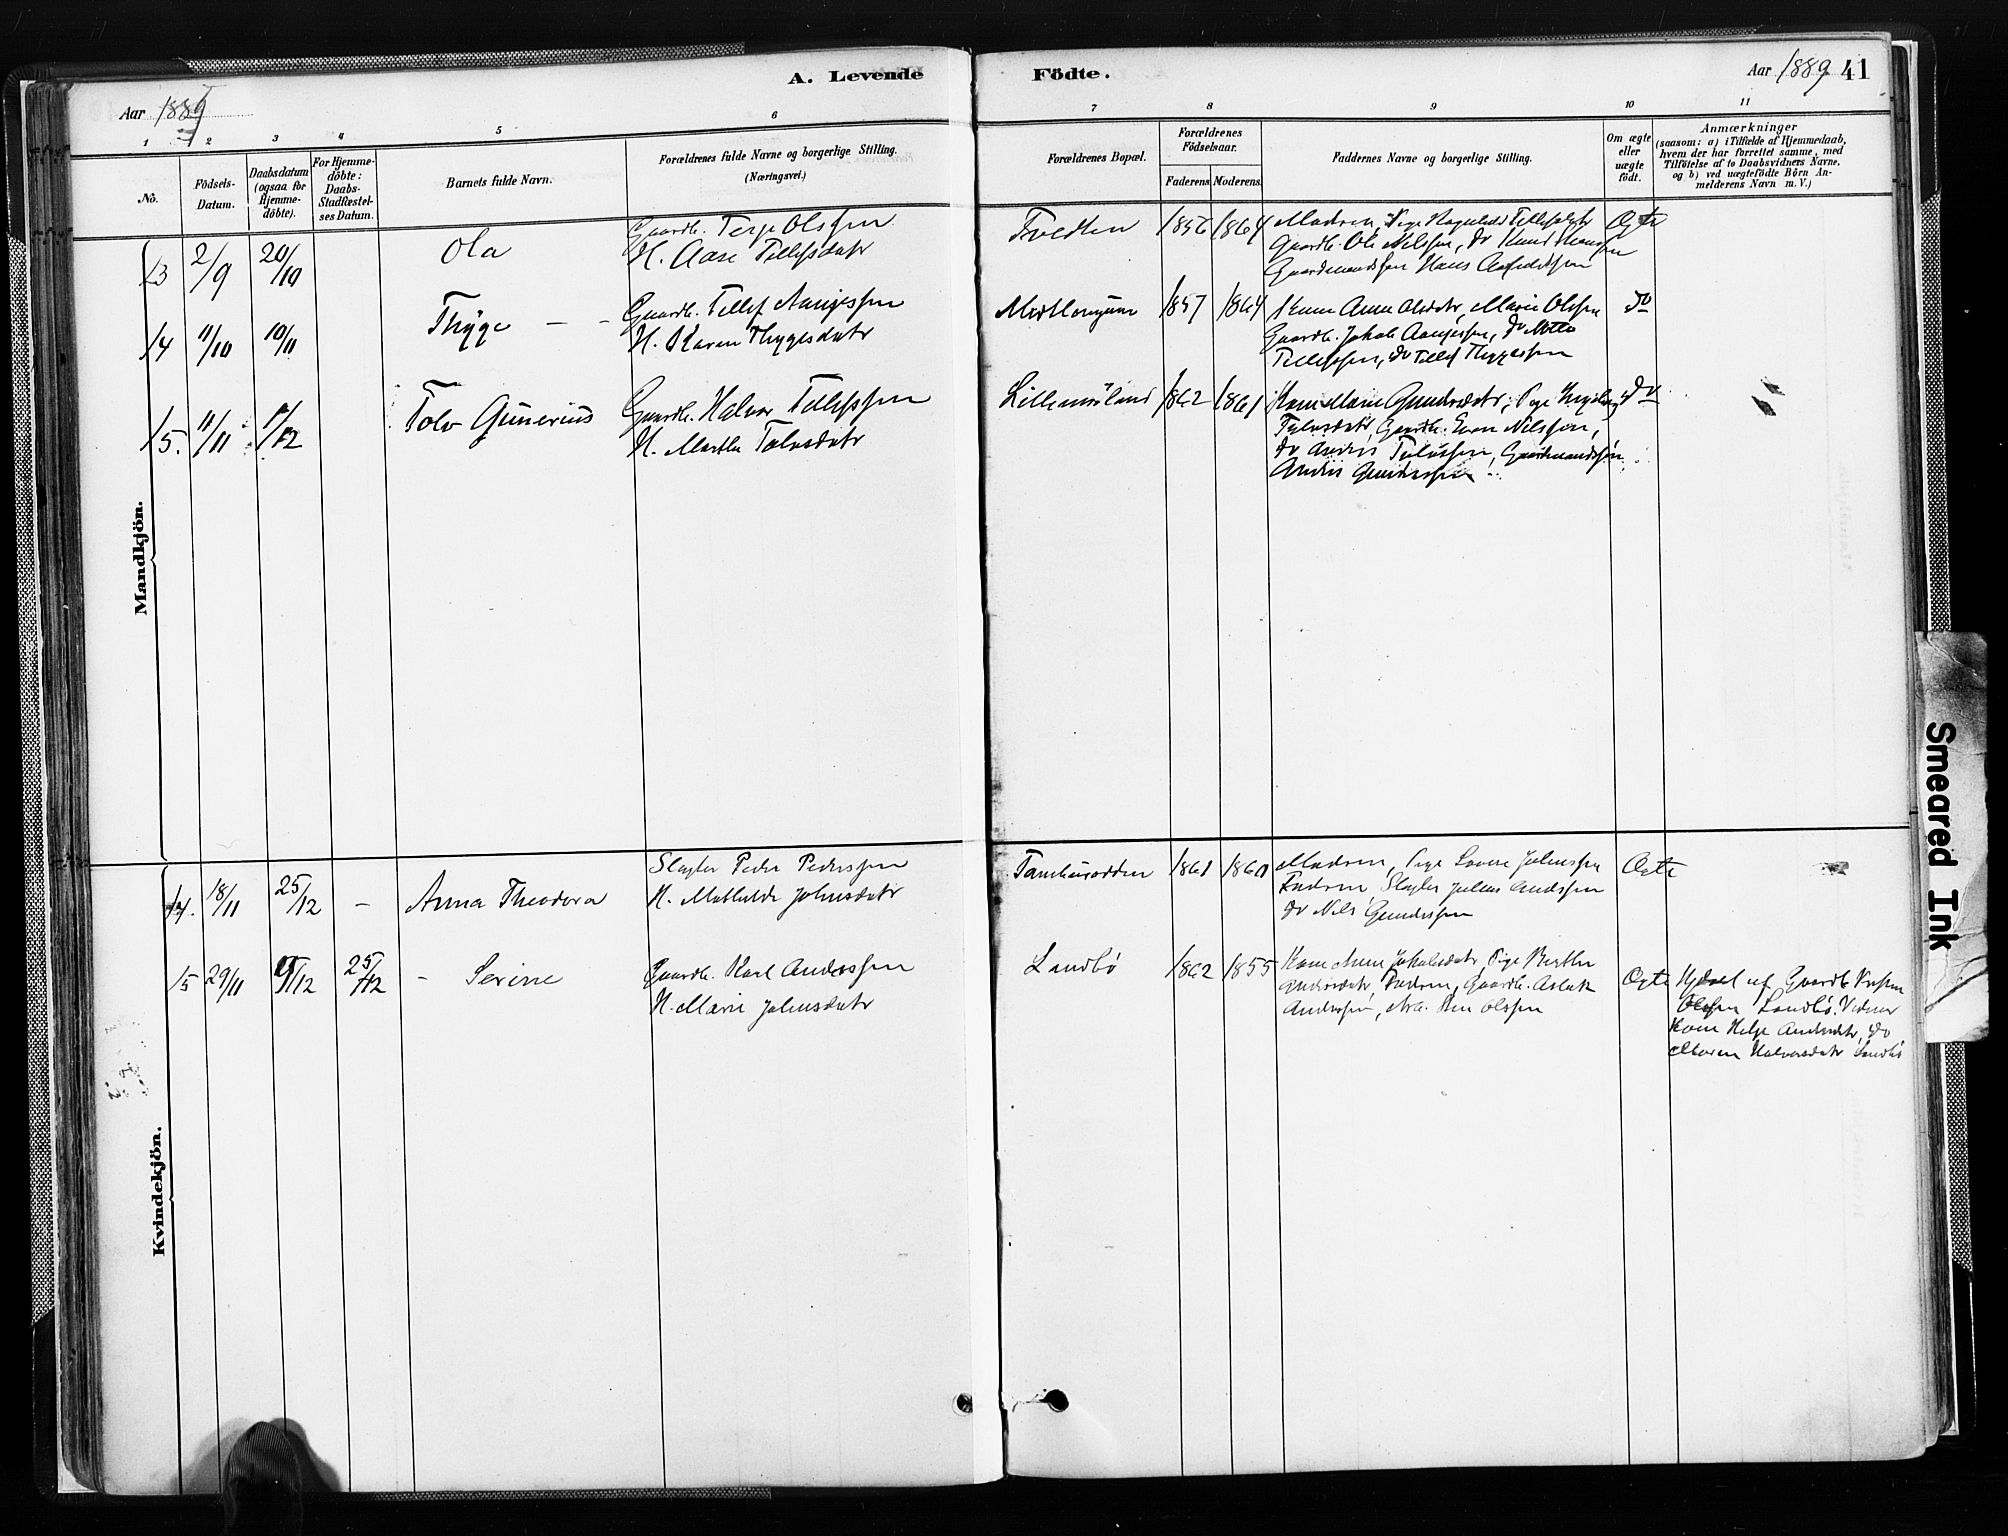 A. Levende Födte.
Aar 1889
Aar 1889 41
1 2 3 4 5 6 7 8 9 10 11
No.
Födsels-Datum.
Daabsdatum (ogsaa for Hjemme-döbte).
For Hjemme-döbte: Daabs-Stadfæstel-ses Datum.
Barnets fulde Navn.
Forældrenes fulde Navne og borgerlige Stilling.
(Næringsvei.)
Forældrenes Bopæl.
Forældrenes Födselsaar.
Faderens Moderens.
Faddernes Navne og borgerlige Stilling.
Om ægte eller uægte födt.
Anmærkninger
(saasom: a) i Tilfælde af Hjemmedaab,
hvem der har forrettet samme, med
Tilföielse af to Daabsvidners Navne,
og b) ved uægtefödte Börn An-
melderens Navn m. V.)
Mandkjön.
13 2/9 20/10 Ola
Gaardb. Terje Olssen
H. Aase Tellefsdatr
Tvedten 1856 1864
Madren, Pige Tellefsdatr
Gaardb. Ole Nilssen, do Knud Hanssen
Gaardmandssøn Hans
Ægte
14 11/10 10/11 Thyge
Gaardb. Tellef Aanjessen
H. Karen Thygesdatr
1857 1864
Kone Anne Olsdatr, Marie Olssen
Gaardb. Jakob Aanjessen, do
Tellefssen, do Tellef Thygessen
do
15. 11/11 1/12 Tolv Gunerius
Gaardb. Halvor Tellefssen
H. Marthe Tolvsdatr
Lillemøsland 1862 1861
Kone Marie Gundersdatr, Pige Ingeborg
Tolvsdatr, Gaardb. Even Nilssen,
do Anders Tolvssen, Gaardmandssøn
Anders Gunderssen
do
Kvindekjön.
14. 18/11 25/12 - Anna Theodora
Slagter Peder Pederssen
H. Mathilde Johnsdatr
1861 1860
Madren, Pige Lovise Johnssen
Fadren Slagter Julius Anderssen
do Nils Gunderssen
Ægte
15 29/11 /12 25/12 - Serine
Gaardb. Karl Anderssen
H. Marie Johnsdatr
Landbø 1862 1855
Kone Anne Jakobsdatr, Pige Berthe
Andersdatr, Fadren, Gaardb. Aslak
Anderssen, Olssen
Ægte
Hjdøbt af Gaardb.
Olssen Landbø. Vidner
Kone Helje Andersdatr, do
Maren Halvorsdatr Landbø
Smeared Ink